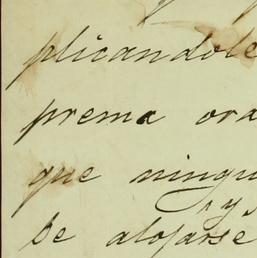 plicandole
prema ora
que ningu
y
be alojarse